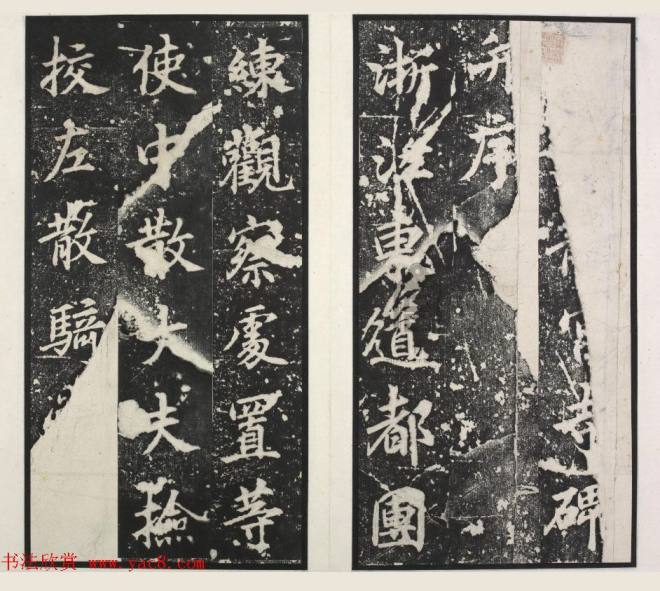 宮寺碑
并序
浙江東道都團
練觀察處置等
使中散大夫撿
挍左散騎
书法欣赏 www.yac8.com